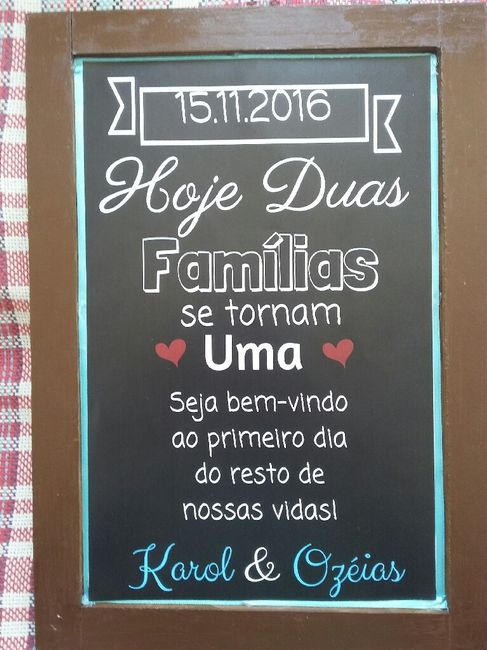 15.11.2016
Hoje Duas
Famílias
se tornam
Uma
Seja bem-vindo
ao primeiro dia
do resto de
nossas vidas!
Karol & Ozéias